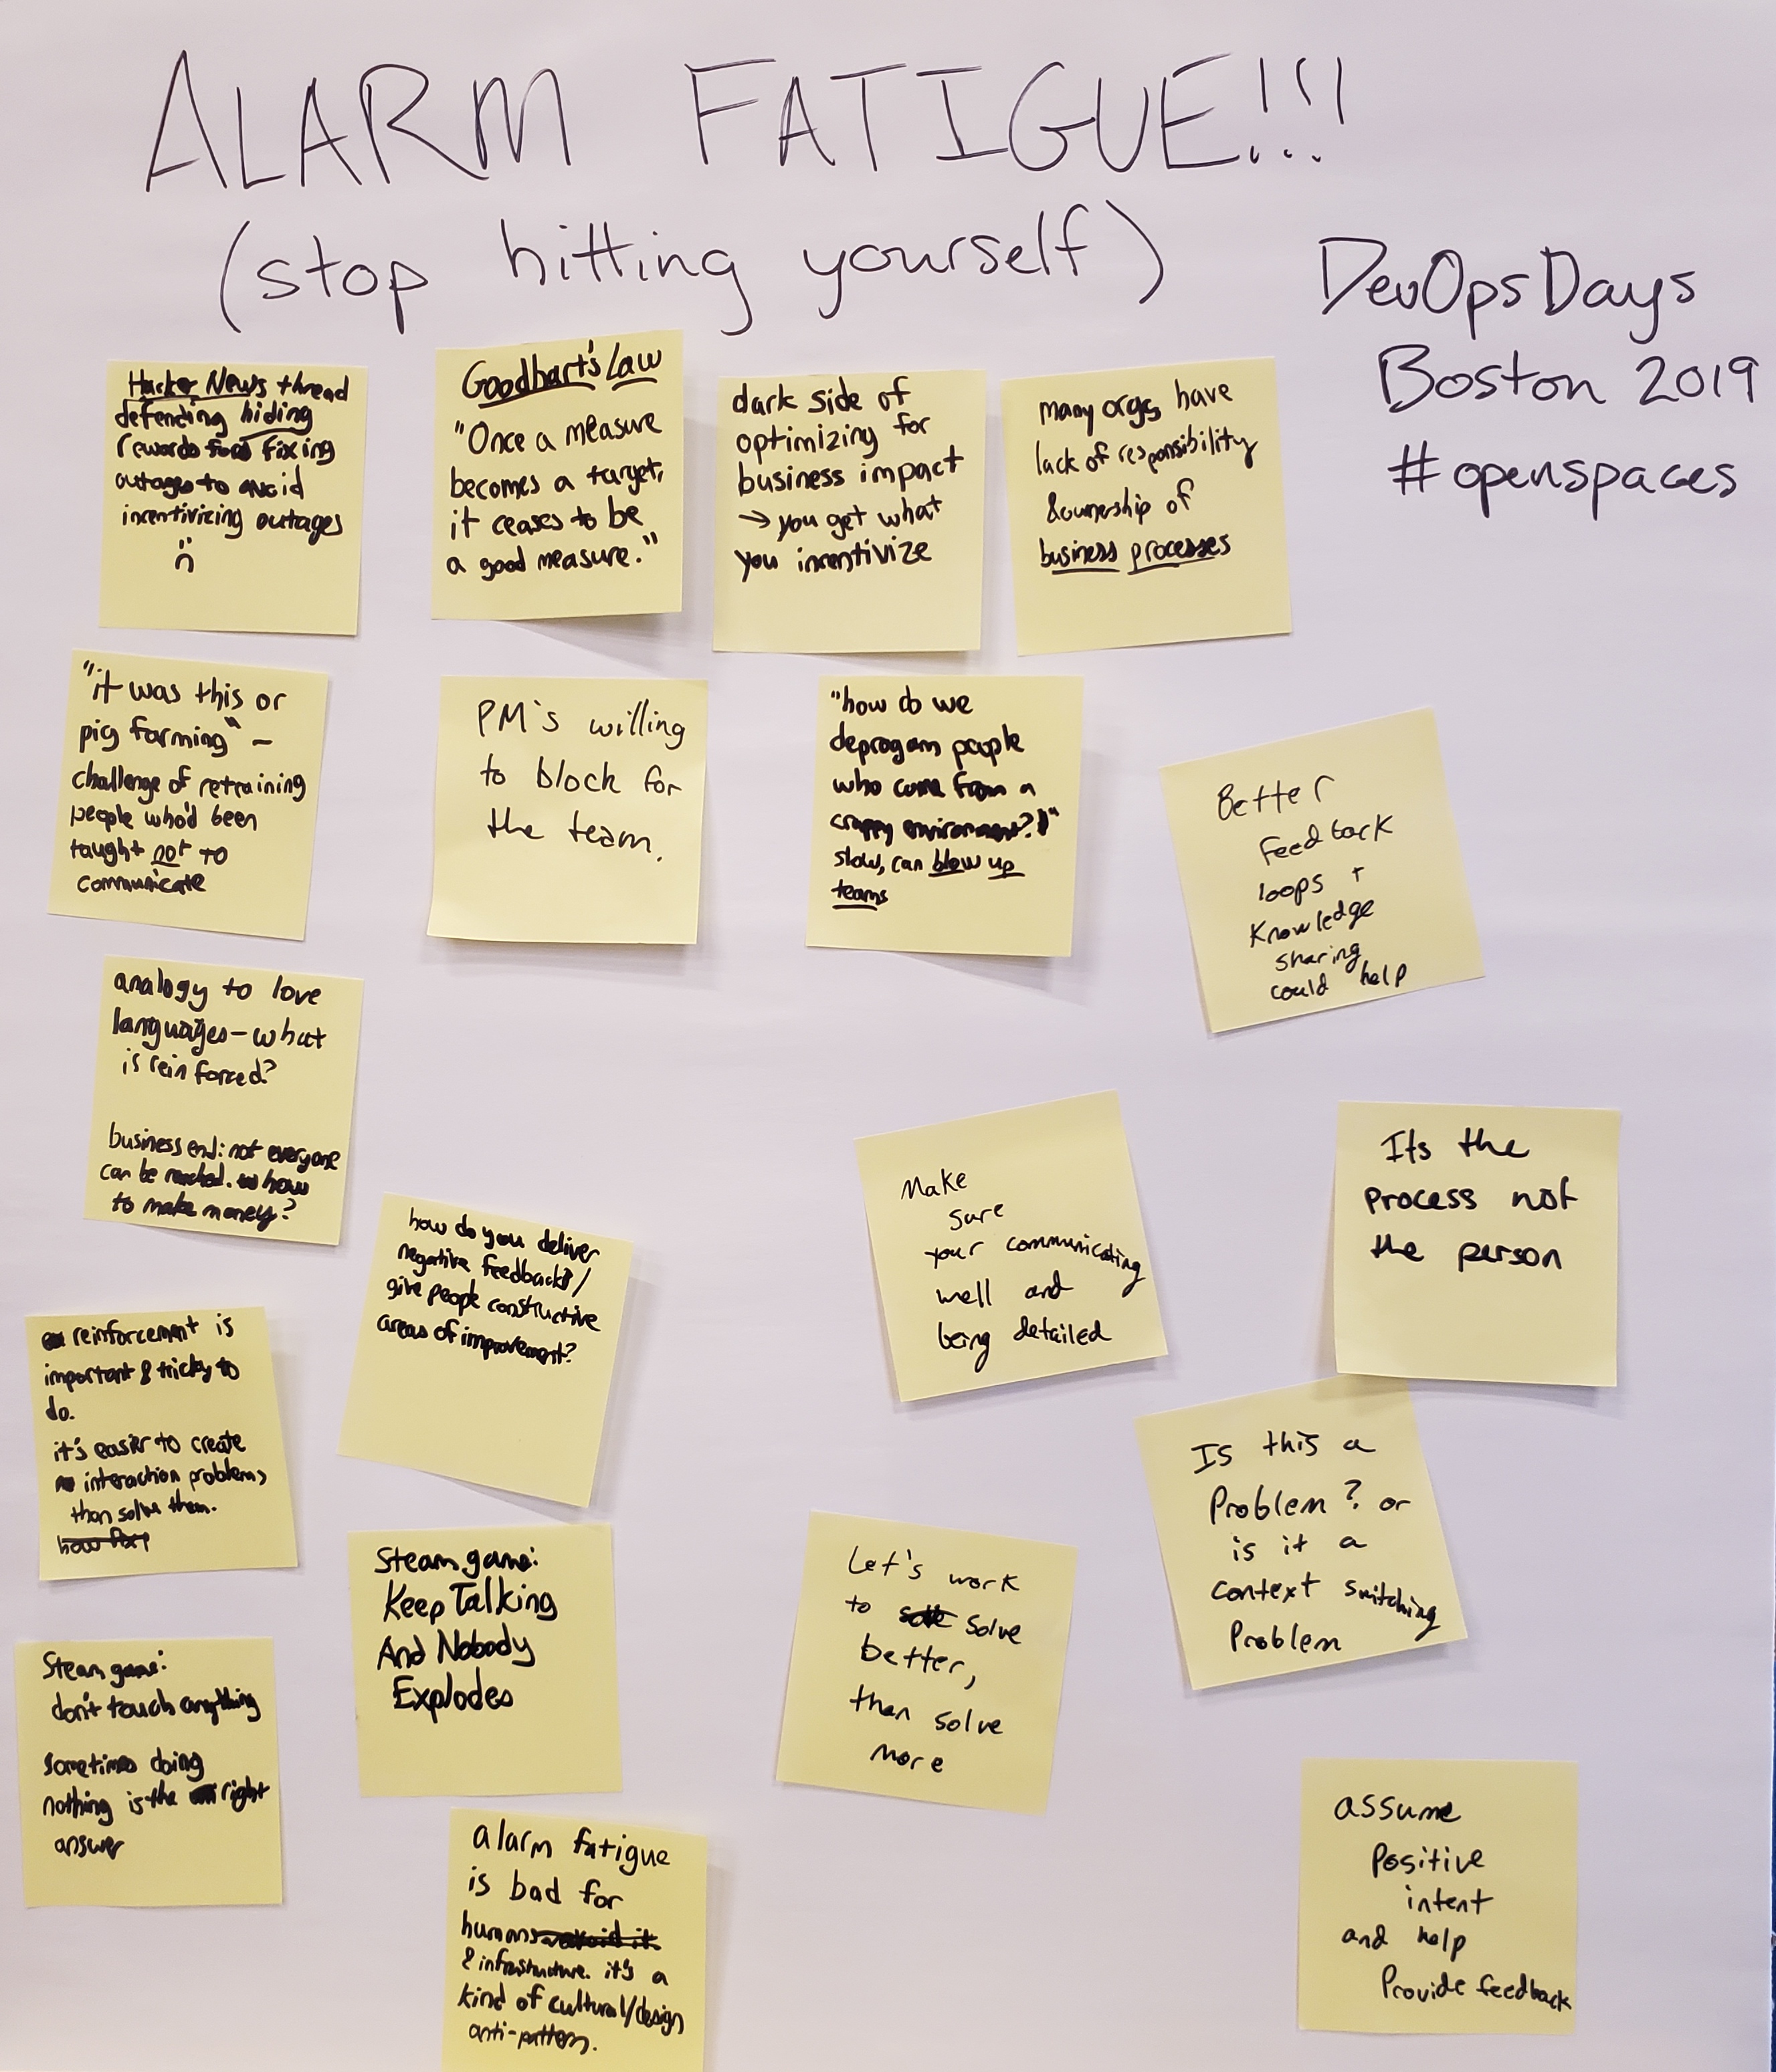 ALARM FATIGUE!!!
(stop hitting yourself)
DevOpsDays
Boston 2019
#openspaces
Hacker News thread
defending hiding
rewards for fixing
outages to avoid
incentivizing outages
Goodhart's Law
"Once a measure
becomes a target,
it ceases to be
a good measure."
dark side of
optimizing for
business impact
→ you get what
you incentivize
many orgs have
lack of responsibility
& ownership of
business processes
"it was this or
pig farming" –
challenge of retraining
people who'd been
taught not to
communicate
PM's willing
to block for
the team.
"how do we
deprogam people
who come from a
crappy environment?"
slow, can blow up
teams
Better
feedback
loops +
Knowledge
sharing
could help
analogy to love
languages – what
is reinforced?
business end: not everyone
can be reached. how
to make money?
how do you deliver
negative feedback/
give people constructive
areas of improvement?
Make
sure
your communicating
well and
being detailed
Its the
process not
the person
reinforcement is
important & tricky to
do.
it's easier to create
interaction problems
than solve them.
Is this a
Problem? or
is it a
context switching
Problem
Steam game:
Keep Talking
And Nobody
Explodes
Let's work
to solve
better,
than solve
more
Steam game:
don't touch anything
sometimes doing
nothing is the right
answer
alarm fatigue
is bad for
humans
& infrastructure. it's a
kind of cultural/design
anti-pattern.
assume
Positive
intent
and help
Provide feedback